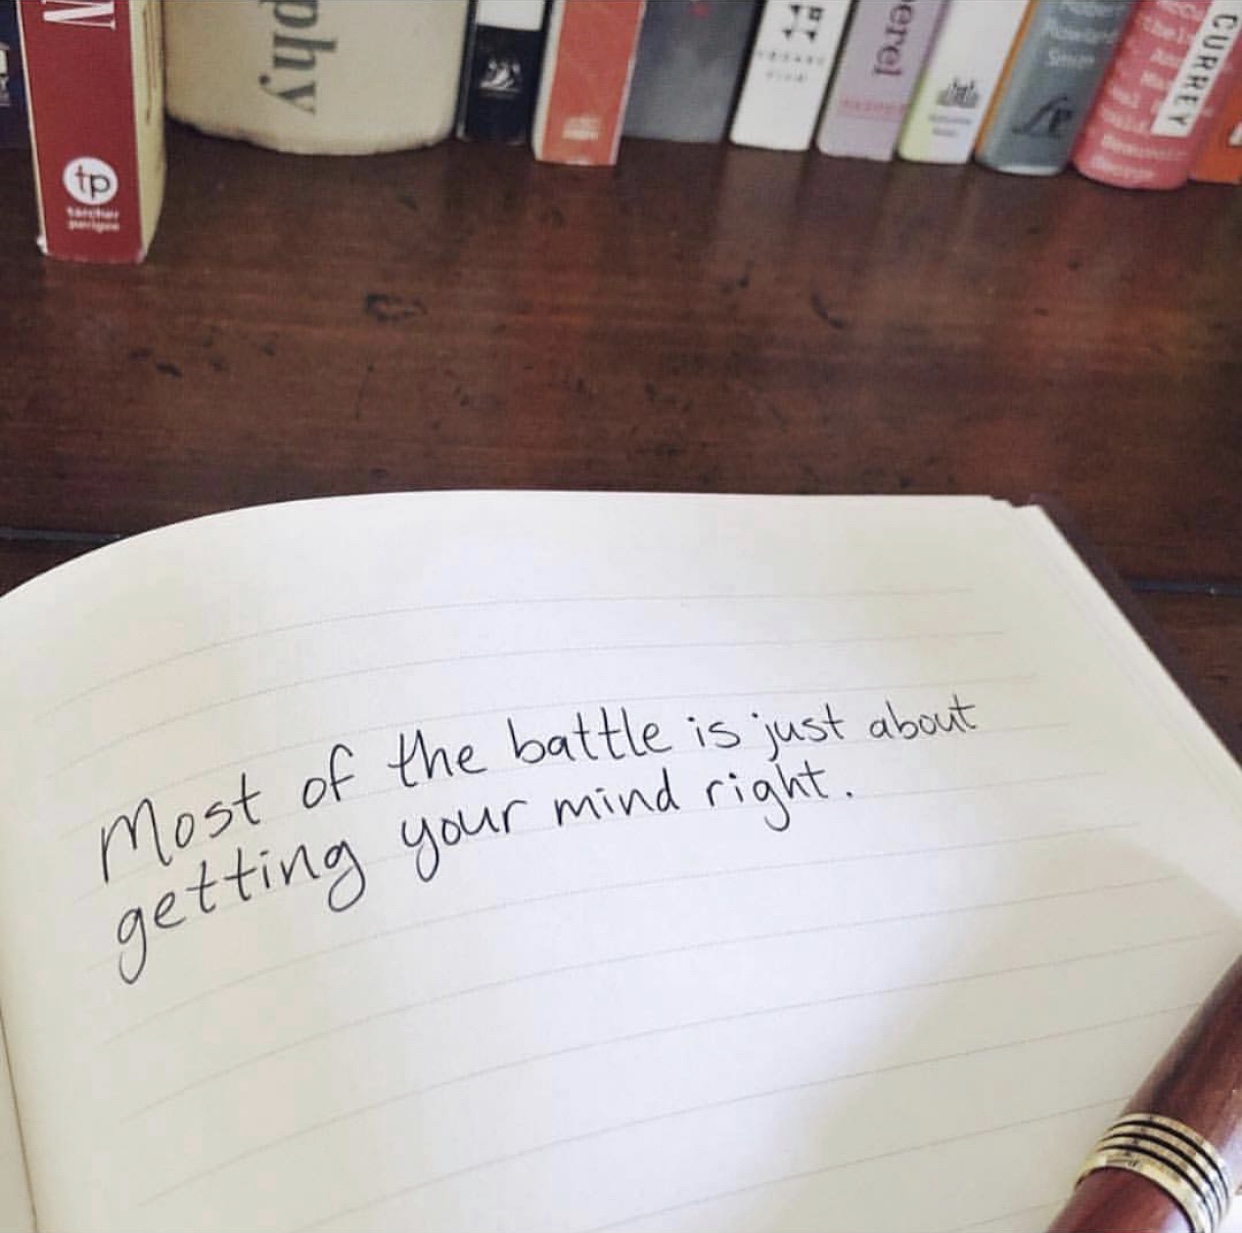 N
phy
tp
tarcher
perigee
erel
Robert
Rowland
Smith
CURREY
Most of the battle is just about
getting your mind right.